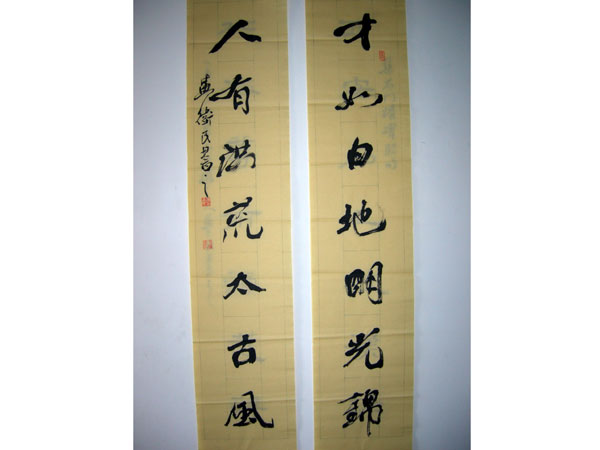 才如白地明光錦
人有洪荒太古風